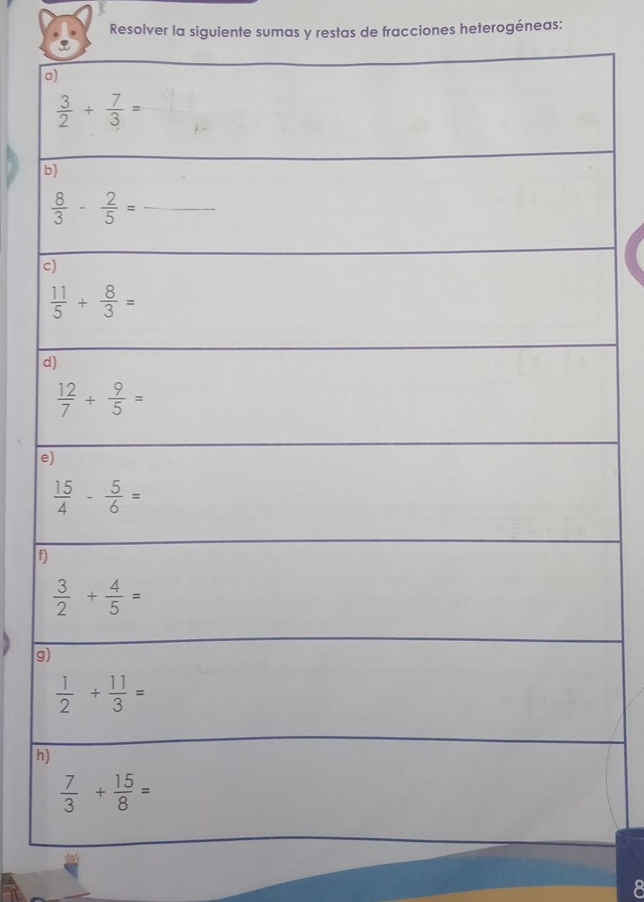 Resolver la siguiente sumas y restas de fracciones heterogéneas:
a)
3/2 + 7/3 =
b)
8/3 - 2/5 =
c)
11/5 + 8/3 =
d)
12/7 + 9/5 =
e)
15/4 - 5/6 =
f)
3/2 + 4/5 =
g)
1/2 + 11/3 =
h)
7/3 + 15/8 =
8